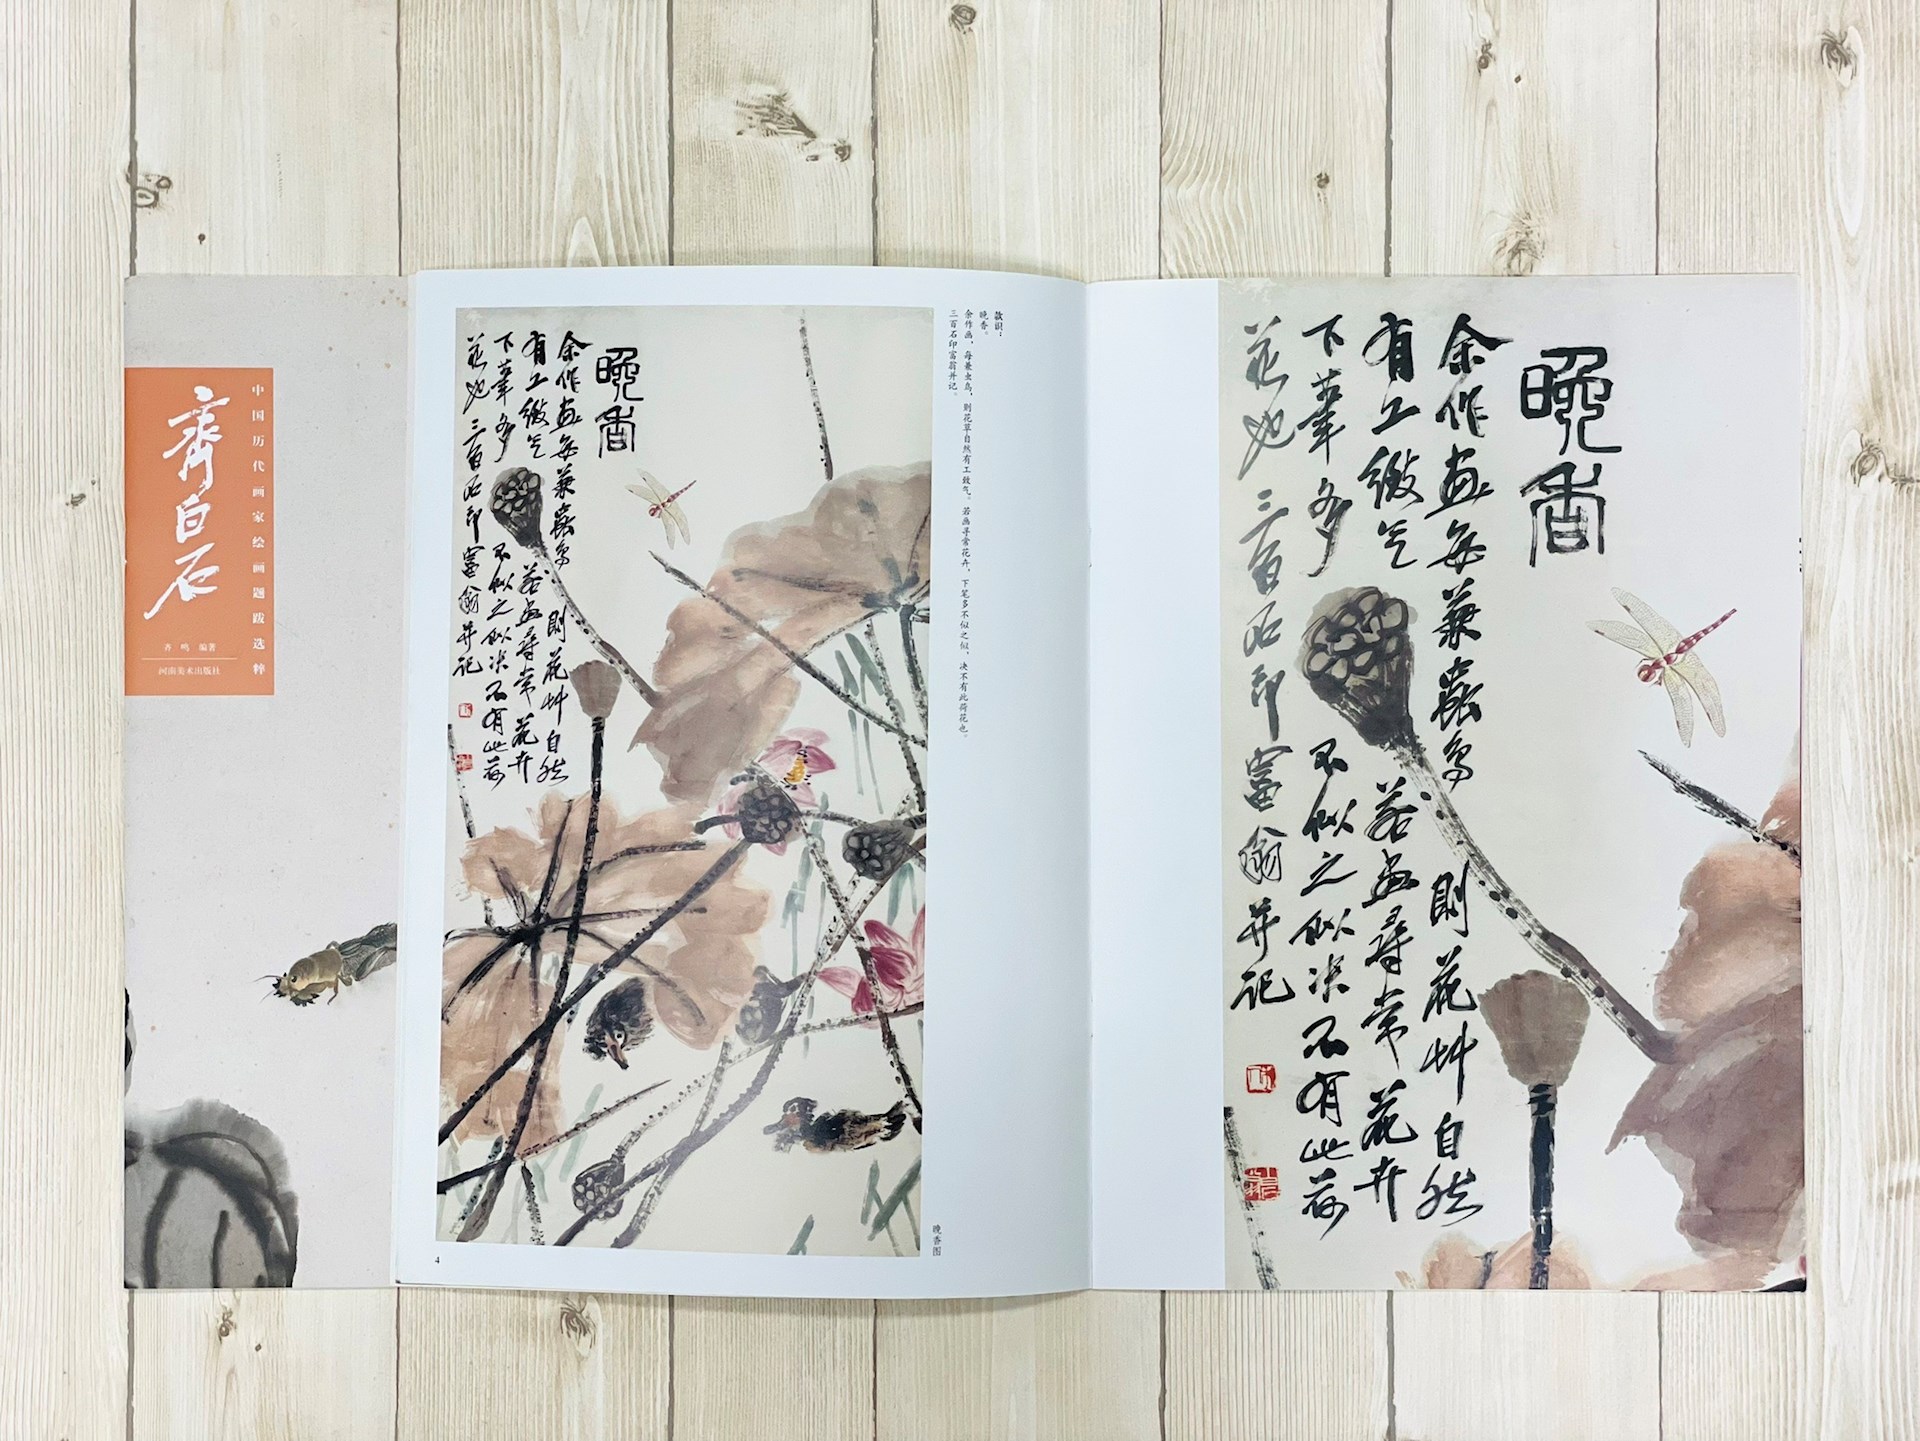 中国历代画家绘画题跋选粹
齐白石
齐鸣 编著
河南美术出版社
晚香
余作画每兼虫鸟
則花艸自然
有工緻气
若画尋常花卉
下筆多
不似之似决不有此荷
花也 三百石印富翁并记
款识：
晚香。
余作画，每兼虫鸟，则花草自然有工致气。若画寻常花卉，下笔多不似之似，决不有此荷花也。
三百石印富翁并记。
晚香图
4
晚香
余作画每兼蟲鸟
則花艸自然
有工緻气
若画尋常花卉
下筆多
不似之似决不有此荷
花也 三百石印富翁并记